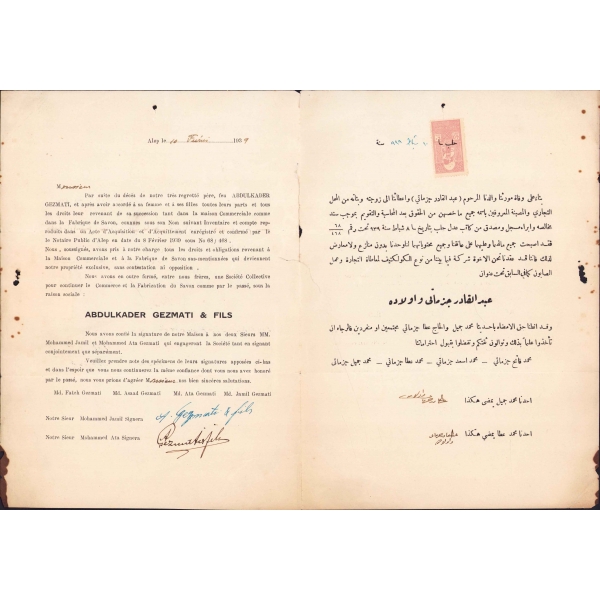 Alep le 10 Février 1939
Monsieur
Par suite du décès de notre très regretté père, feu ABDULKADER
GEZMATI, et après avoir accordé à sa femme et à ses filles toutes leurs parts et tous
les droits leur revenant de sa succession tant dans la maison Commerciale comme
dans la Fabrique de Savon, connues sous son Nom suivant Inventaire et compte
redditu dans un Acte d'Acquisition et d'Acquittement enregistré et confirmé par
le Notaire Public d'Alep en date du 8 Février 1939 sous No 68 ; 468 .
Nous , soussignés, avons pris à notre charge tous les droits et obligations revenant à
la Maison Commerciale et à la Fabrique de Savon sus-mentionnées qui deviennent
notre propriété exclusive, sans contestation ni opposition .
Nous avons en outre formé, entre nous frères, une Société Collective
pour continuer le Commerce et la Fabrication du Savon comme par le passé, sous la
raison sociale :
ABDULKADER GEZMATI & FILS
Nous avons confié la signature de notre Maison à nos deux Sieurs MM.
Mohammed Jamil et Mohammed Ata Gezmati qui engageront la Société tant en signant
conjointement que séparément.
Veuillez prendre note des spécimens de leurs signatures apposées ci-bas
et dans l'espoir que vous nous continuerez la même confiance dont vous nous avez honoré
par le passé, nous vous prions d'agréer Monsieur nos bien sincères salutations.
Md. Fateh Gezmati Md. Assad Gezmati Md. Ata Gezmati Md. Jamil Gezmati
Notre Sieur Mohammed Jamil Signera A. Gezmati & fils
Notre Sieur Mohammed Ata Signera Gezmati & fils
حلب سنة
بناء على وفاة مورثنا والدنا المرحوم (عبد القادر جزماتي) واعطائنا الى زوجته وبناته من المحل
التجاري والمصبنة المعروفين باسمه جميع ما خصهن من الحقوق بعد المحاسبة والتقويم بموجب سند
مخالصه وابراء مسجل ومصدق من كاتب عدل حلب بتاريخ ٨ شباط سنة ٩٣٩ تحت رقم ٦٨/٤٦٨
فقد اصبحت جميع
لذلك فاننا قد عقدنا نحن الاخوة شركة فيما بيننا من نوع الكولكتيف لمعاطاة التجارة وعمل
الصابون كما في السابق تحت عنوان
عبد القادر جزماتي واولاده
وقد اعطينا حق الامضاء باحدينا محمد جميل والحاج عطا جزماتي مجتمعين او منفردين فالرجاء ان
تأخذوا علماً بذلك وتفضلوا بقبول احتراماتنا
محمد فاتح جزماتي – محمد اسعد جزماتي – محمد عطا جزماتي – محمد جميل جزماتي
احدنا محمد جميل يمضي هكذا
احدنا محمد عطا يمضي هكذا